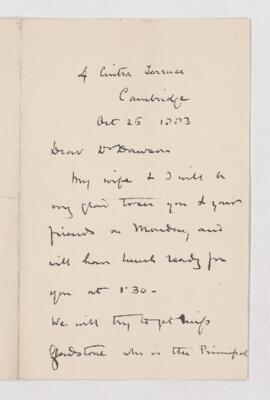 4 Cintra Terrace
Cambridge
Oct 26 1883
Dear Dr Dawson
My wife & I will be
very glad to see you & your
friends on Monday, and
will have lunch ready for
you at 1.30 -
We will try to get Miss
Gladstone who is the Principal